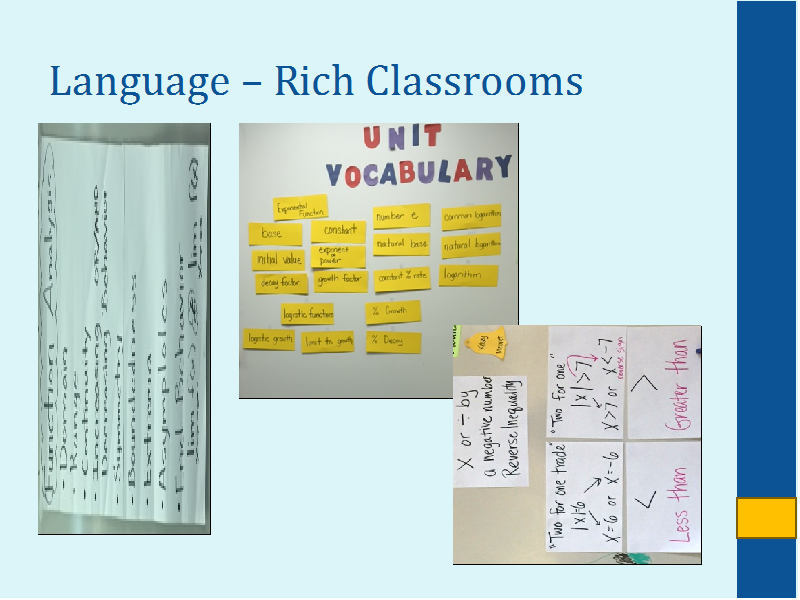 Language – Rich Classrooms
Function Analysis
• Domain
• Range
• Continuity
• Increasing or/and
Decreasing Behavior
• Symmetry
• Boundedness
• Extrema
• Asymptotes
• End Behavior
UNIT
VOCABULARY
Exponential
Function
base
constant
number e
common logarithm
initial value
exponent
or
power
natural base
natural logarithm
decay factor
growth factor
constant % rate
logarithm
logistic function
% Growth
logistic growth
limit to growth
% Decay
X or ÷ by
a negative number
Reverse Inequality
"Two for one trade"
|x|=6
x=6 or x=-6
"Two for one"
|x|>7
x>7 or x<-7
reverse sign
<
Less than
>
Greater than